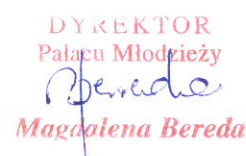 DYREKTOR
Pałacu Młodzieży
Bereda
Magdalena Bereda